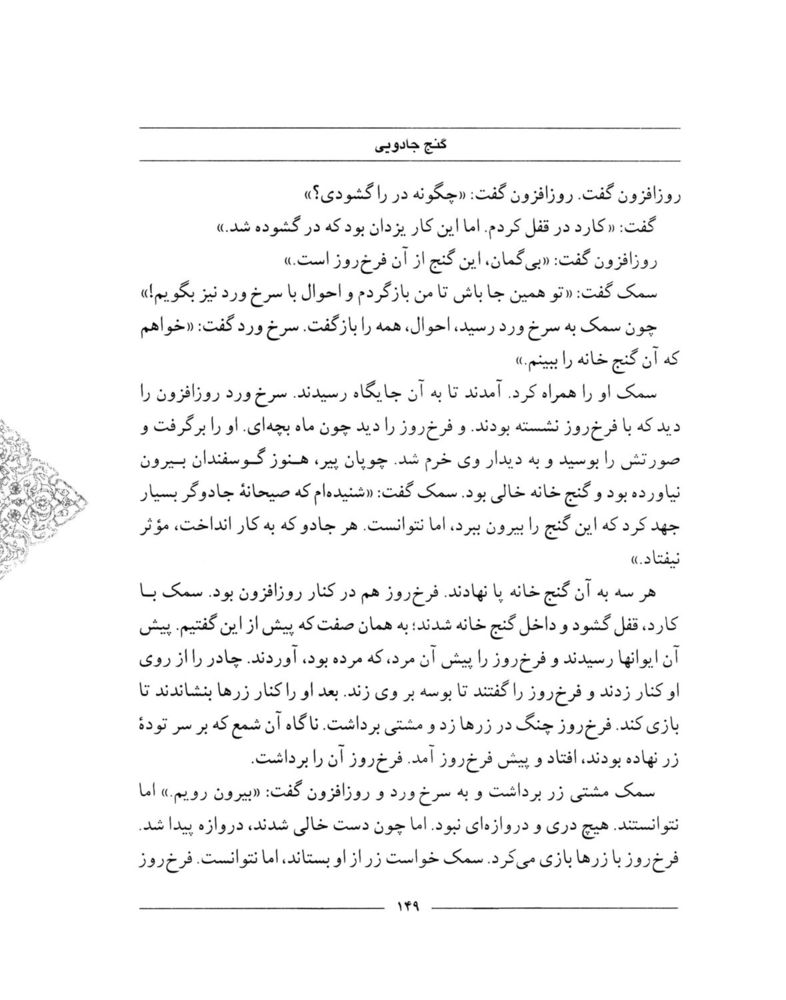 گنج جادویی
روزافزون گفت. روزافزون گفت: «چگونه در را گشودی؟»
گفت: «کارد در قفل کردم. اما این کار یزدان بود که در گشوده شد.»
روزافزون گفت: «بی‌گمان، این گنج از آن فرخ‌روز است.»
سمک گفت: «تو همین جا باش تا من بازگردم و احوال با سرخ ورد نیز بگویم!»
چون سمک به سرخ ورد رسید، احوال، همه را بازگفت. سرخ ورد گفت: «خواهم
که آن گنج خانه را ببینم.»
سمک او را همراه کرد. آمدند تا به آن جایگاه رسیدند. سرخ ورد روزافزون را
دید که با فرخ‌روز نشسته بودند. و فرخ‌روز را دید چون ماه بچه‌ای. او را برگرفت و
صورتش را بوسید و به دیدار وی خرم شد. چوپان پیر، هنوز گوسفندان بیرون
نیاورده بود و گنج خانه خالی بود. سمک گفت: «شنیده‌ام که صیحانهٔ جادوگر بسیار
جهد کرد که این گنج را بیرون ببرد، اما نتوانست. هر جادو که به کار انداخت، مؤثر
نیفتاد.»
هر سه به آن گنج خانه پا نهادند. فرخ‌روز هم در کنار روزافزون بود. سمک با
کارد، قفل گشود و داخل گنج خانه شدند؛ به همان صفت که پیش از این گفتیم. پیش
آن ایوانها رسیدند و فرخ‌روز را پیش آن مرد، که مرده بود، آوردند. چادر را از روی
او کنار زدند و فرخ‌روز را گفتند تا بوسه بر وی زند. بعد او را کنار زرها بنشاندند تا
بازی کند. فرخ‌روز چنگ در زرها زد و مشتی برداشت. ناگاه آن شمع که بر سر تودهٔ
زر نهاده بودند، افتاد و پیش فرخ‌روز آمد. فرخ‌روز آن را برداشت.
سمک مشتی زر برداشت و به سرخ ورد و روزافزون گفت: «بیرون رویم.» اما
نتوانستند. هیچ دری و دروازه‌ای نبود. اما چون دست خالی شدند، دروازه پیدا شد.
فرخ‌روز با زرها بازی می‌کرد. سمک خواست زر از او بستاند، اما نتوانست. فرخ‌روز
۱۴۹